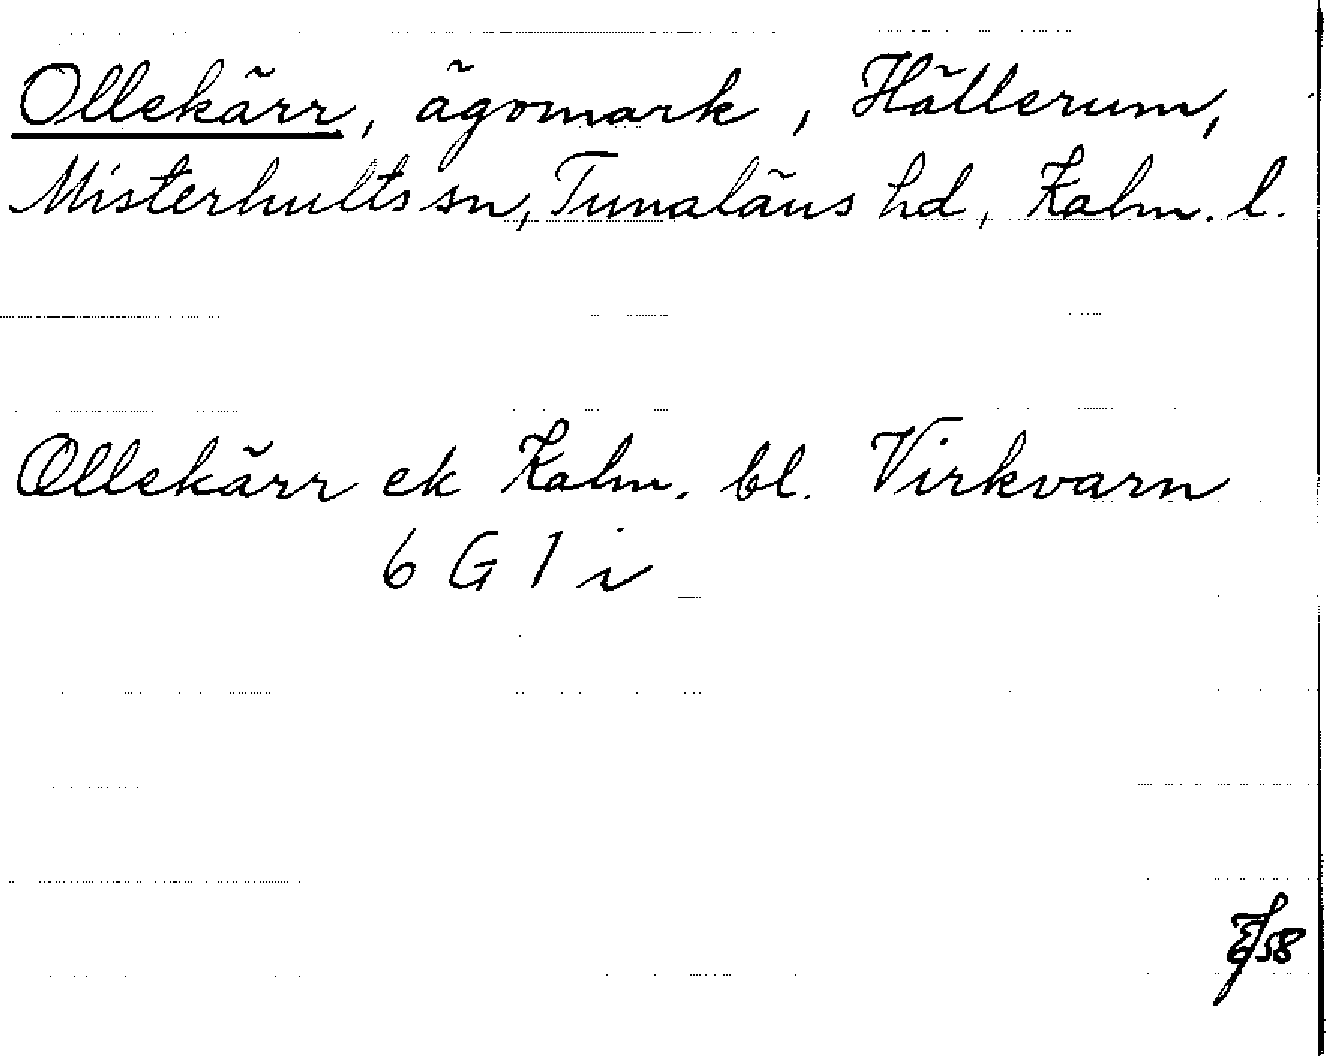 Ollekärr, ägomark, Hällerum,
Misterhults sn, Tunaläns hd, Kalm. l.
Ollekärr ek Kalm. bl. Virkvarn
6 G 1 i